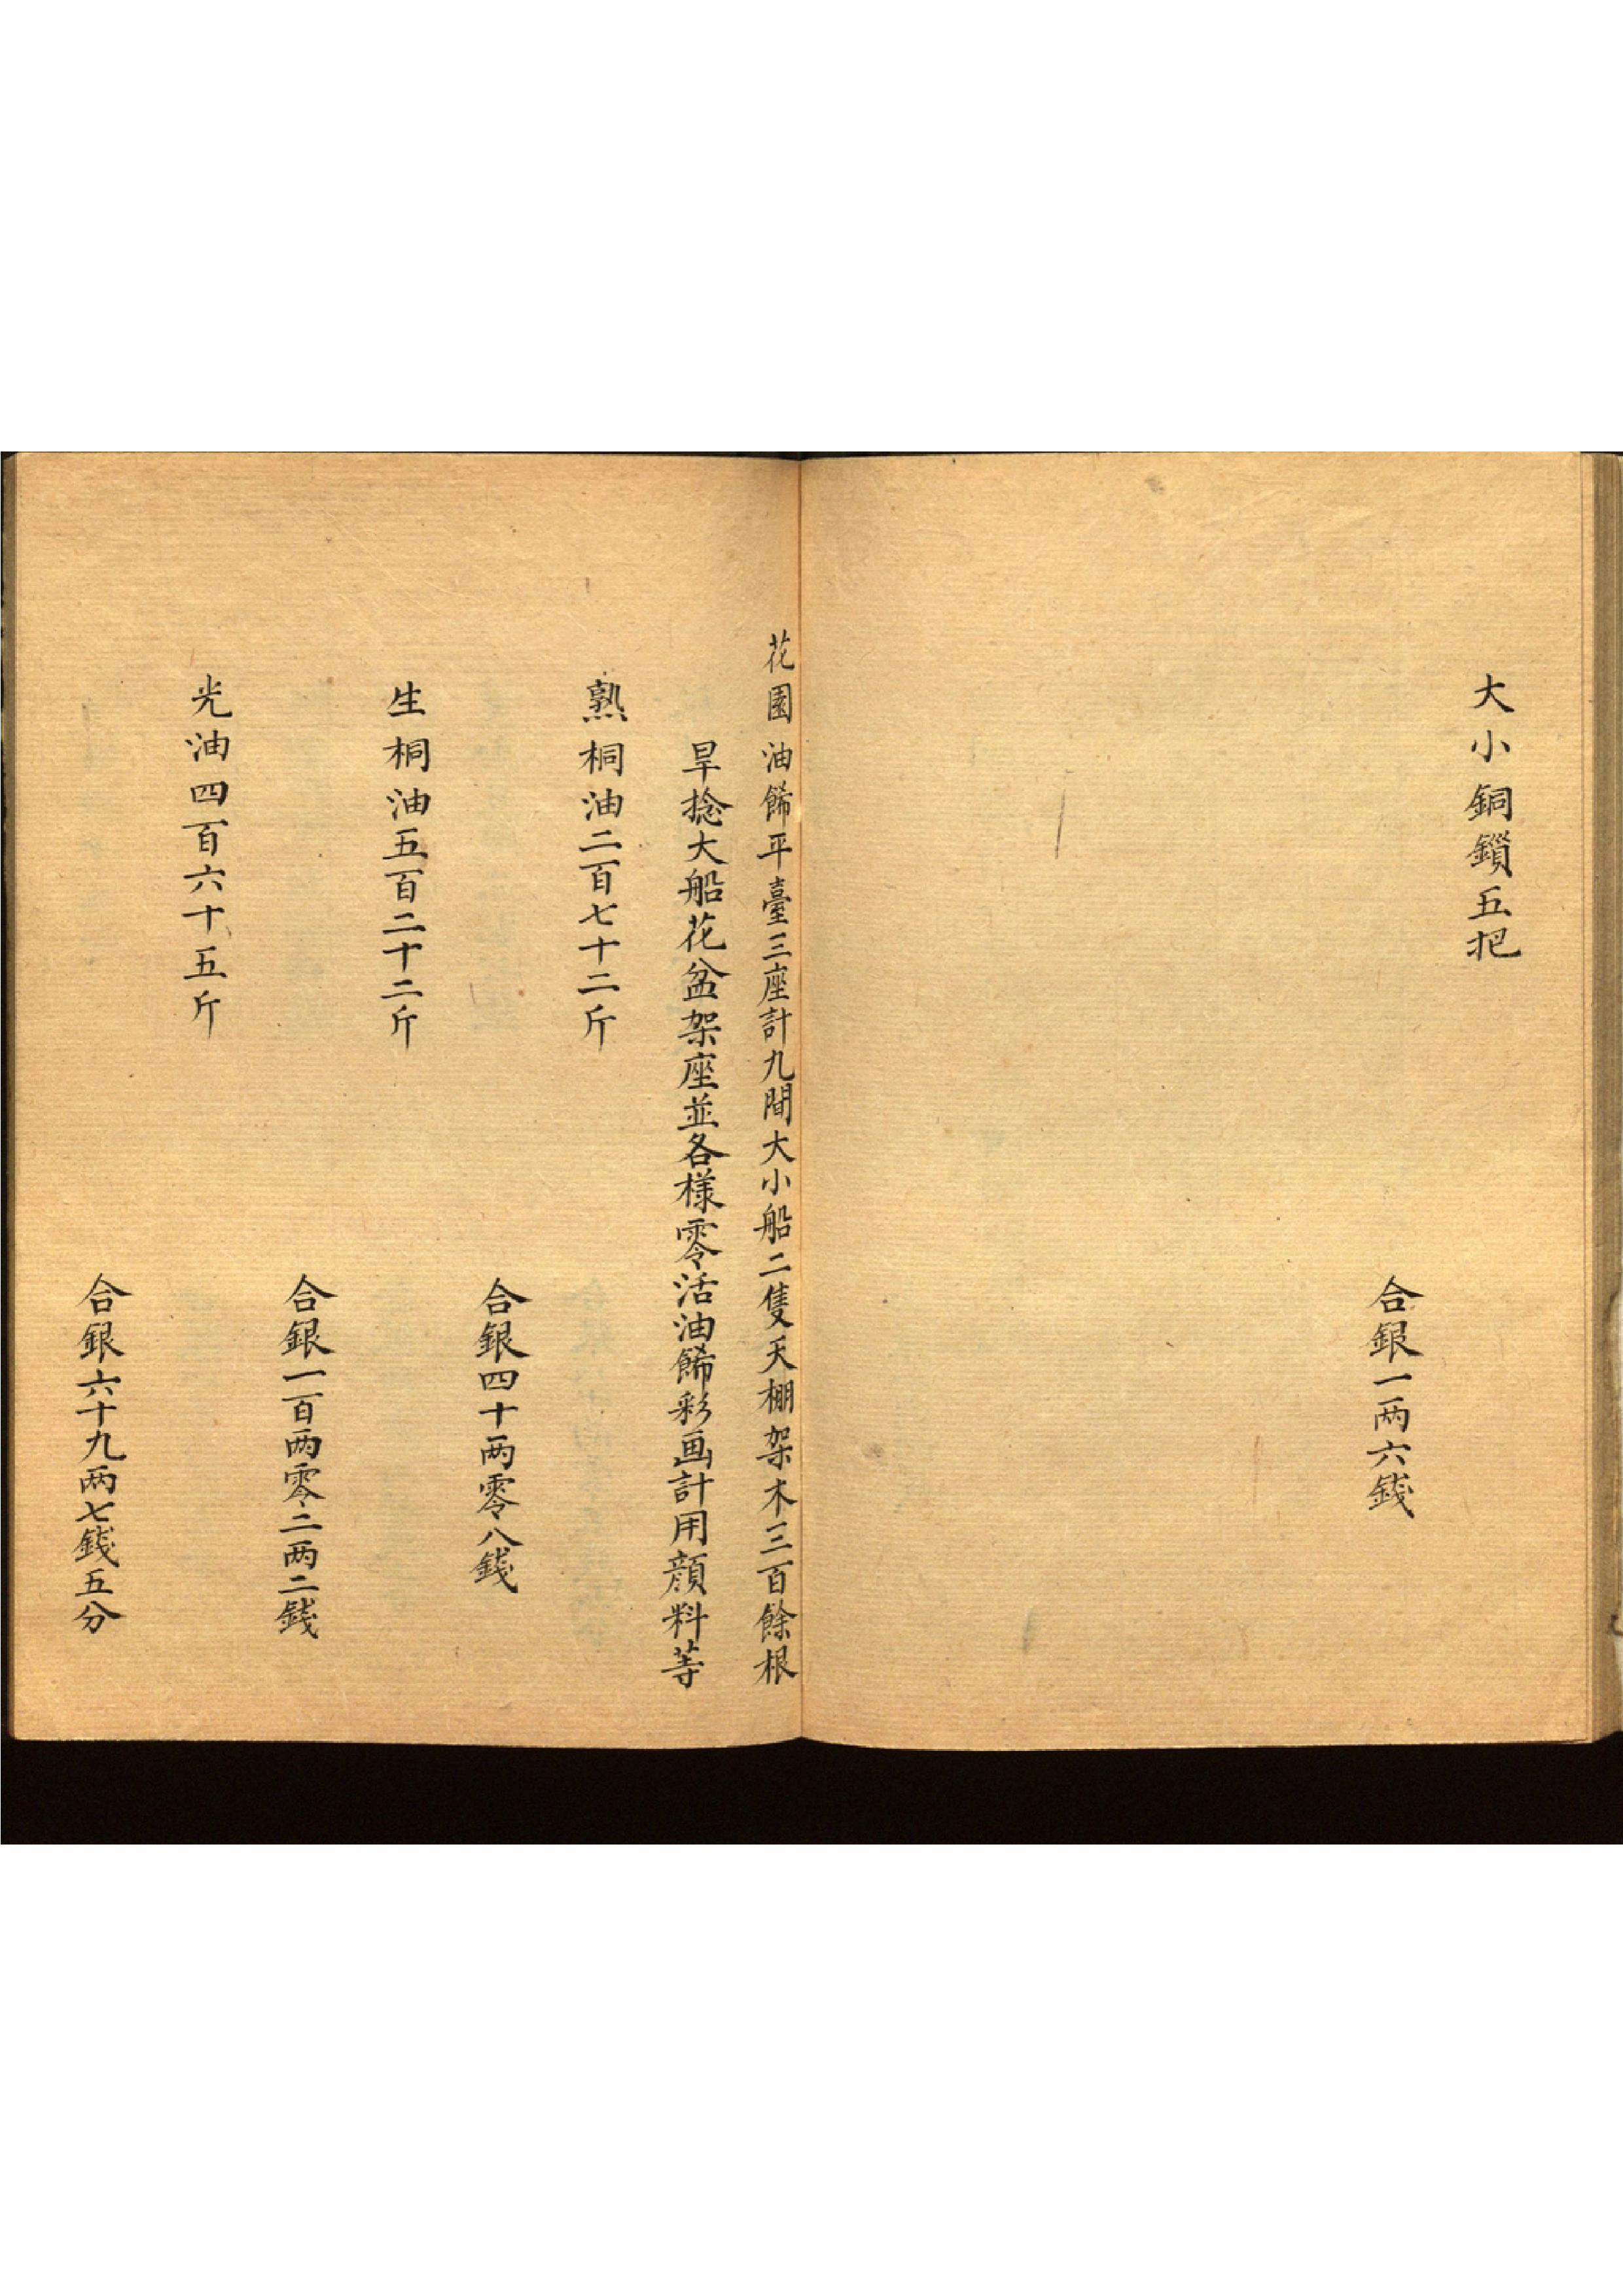 大小銅鎖五把
合銀一两六錢
花園油餙平臺三座計九間大小船二隻天棚架木三百餘根
旱捻大船花盆架座並各樣零活油餙彩画計用顔料等
熟桐油二百七十二斤
合銀四十两零八錢
生桐油五百二十二斤
合銀一百两零二两二錢
光油四百六十五斤
合銀六十九两七錢五分